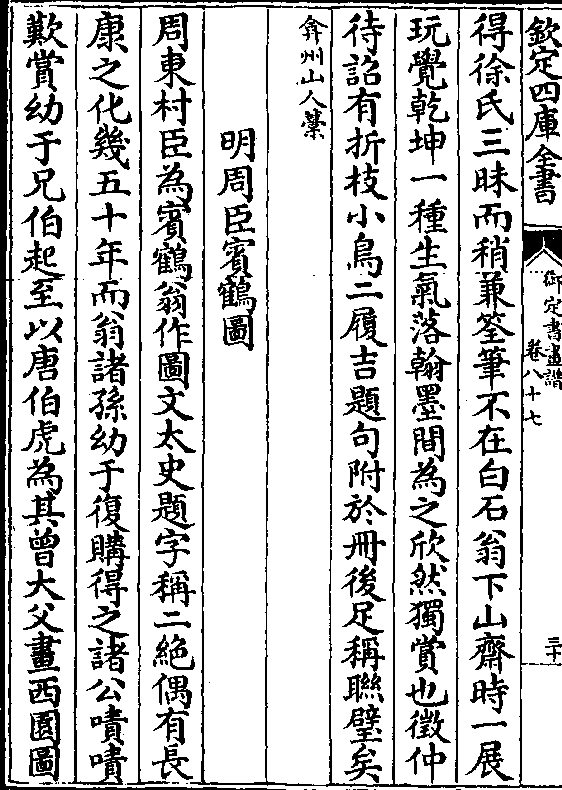 欽定四庫全書
御定書畫譜
卷八十七
三十
得徐氏三昧而稍兼筌筆不在白石翁下山齋時一展
玩覺乾坤一種生氣落翰墨間為之欣然獨賞也徵仲
待詔有折枝小鳥二履吉題句附於冊後足稱聯璧矣
弇州山人藁
明周臣賓鶴圖
周東村臣為賓鶴翁作圖文太史題字稱二絶偶有長
康之化幾五十年而翁諸孫幼于復購得之諸公嘖嘖
歎賞幼于兄伯起至以唐伯虎為其曾大父畫西園圖